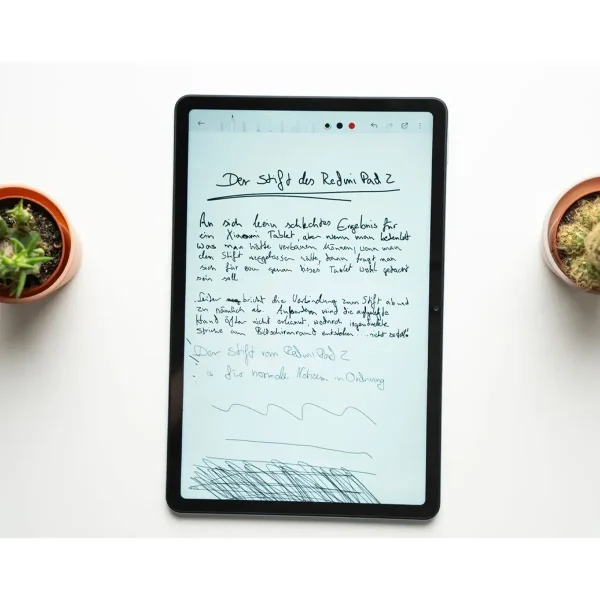 Der Stift des Redmi Pad 2
An sich kein schlechtes Ergebnis für
ein Xiaomi Tablet, aber wenn man bedenkt
was man hätte verbauen können, wenn man
den Stift ausgelassen hätte, dann fragt man
sich für wen genau dieses Tablet wohl gedacht
sein soll
Leider bricht die Verbindung zum Stift ab und
zu nämlich ab. Außerdem wird die aufgelegte
Hand öfter nicht erkannt, wodurch irgendwelche
Striche am Bildschirmrand entstehen ... nicht so toll!
Der Stift vom Redmi Pad 2
is für normale Notizen in Ordnung